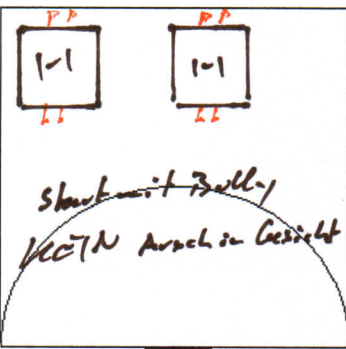 P P P P
1-1 1-1
L L L L
Start mit Bully
KEIN Arsch in Gesicht